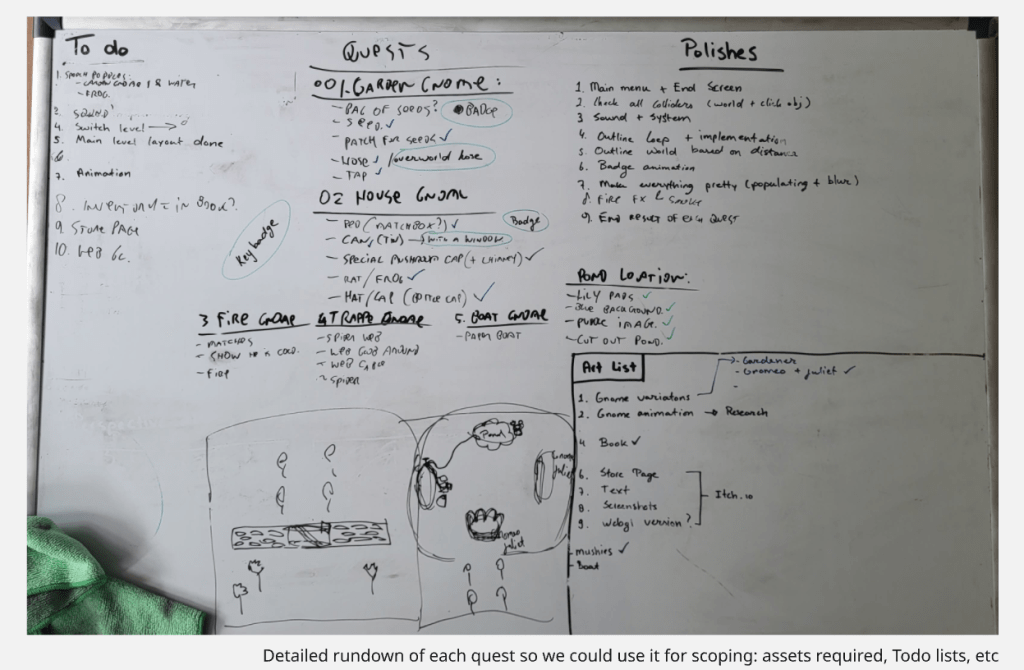 To do
1. Spawn Poppers:
- Garden Gnome 1 & Water
- FROG.
2. SOUND
4. Switch level →
5. Main level layout done
6.
7. Animation
8. INVENTORY IN BOOK?
9. STORE PAGE
10. WEB GL
Key badge
QUESTS
001. GARDEN GNOME:
- BAG OF SEEDS? BADGE
- SEED. ✓
- PATCH FOR SEEDS ✓
- HOSE ✓ / overworld hose
- TAP ✓
02 HOUSE GNOME
- BED (MATCHBOX?) ✓ Badge
- CAN, (TIN) → WITH A WINDOW
- SPECIAL MUSHROOM CAP (+ CHIMNEY) ✓
- RAT / FROG ✓
- HAT / CAP (BOTTLE CAP) ✓
3 FIRE GNOME
- MATCHES
- SHOW HE IS COLD.
- FIRE
4 TRAPPED GNOME
- SPIDER WEB
- WEB GNOME AROUND
- WEB CABLE
- SPIDER
5. BOAT GNOME
- PAPER BOAT
Polishes
1. Main menu + End Screen
2. Check all Colliders (world + click obj)
3 Sound + System
4. Outline Loop + implementation
5. Outline world based on distance
6. Badge animation
7. Make everything pretty (populating + blur)
8. FIRE FX & SMOKE
9. End RESULT OF EACH QUEST
POND LOCATION:
- LILY PADS ✓
- BACKGROUND. ✓
- PUBLIC IMAGE. ✓
- CUT OUT POND. ✓
Art List
→ Gardener
- Gnomeo + Juliet ✓
-
1. Gnome variatons
2. Gnome animation → Research
4 Book ✓
6. Store Page
7. Text
8. Screenshots
9. Webgl version?
Itch.io
- mushies ✓
- Boat
Pond
Gnomeo
Juliet
Gnomeo
Juliet
Detailed rundown of each quest so we could use it for scoping: assets required, Todo lists, etc